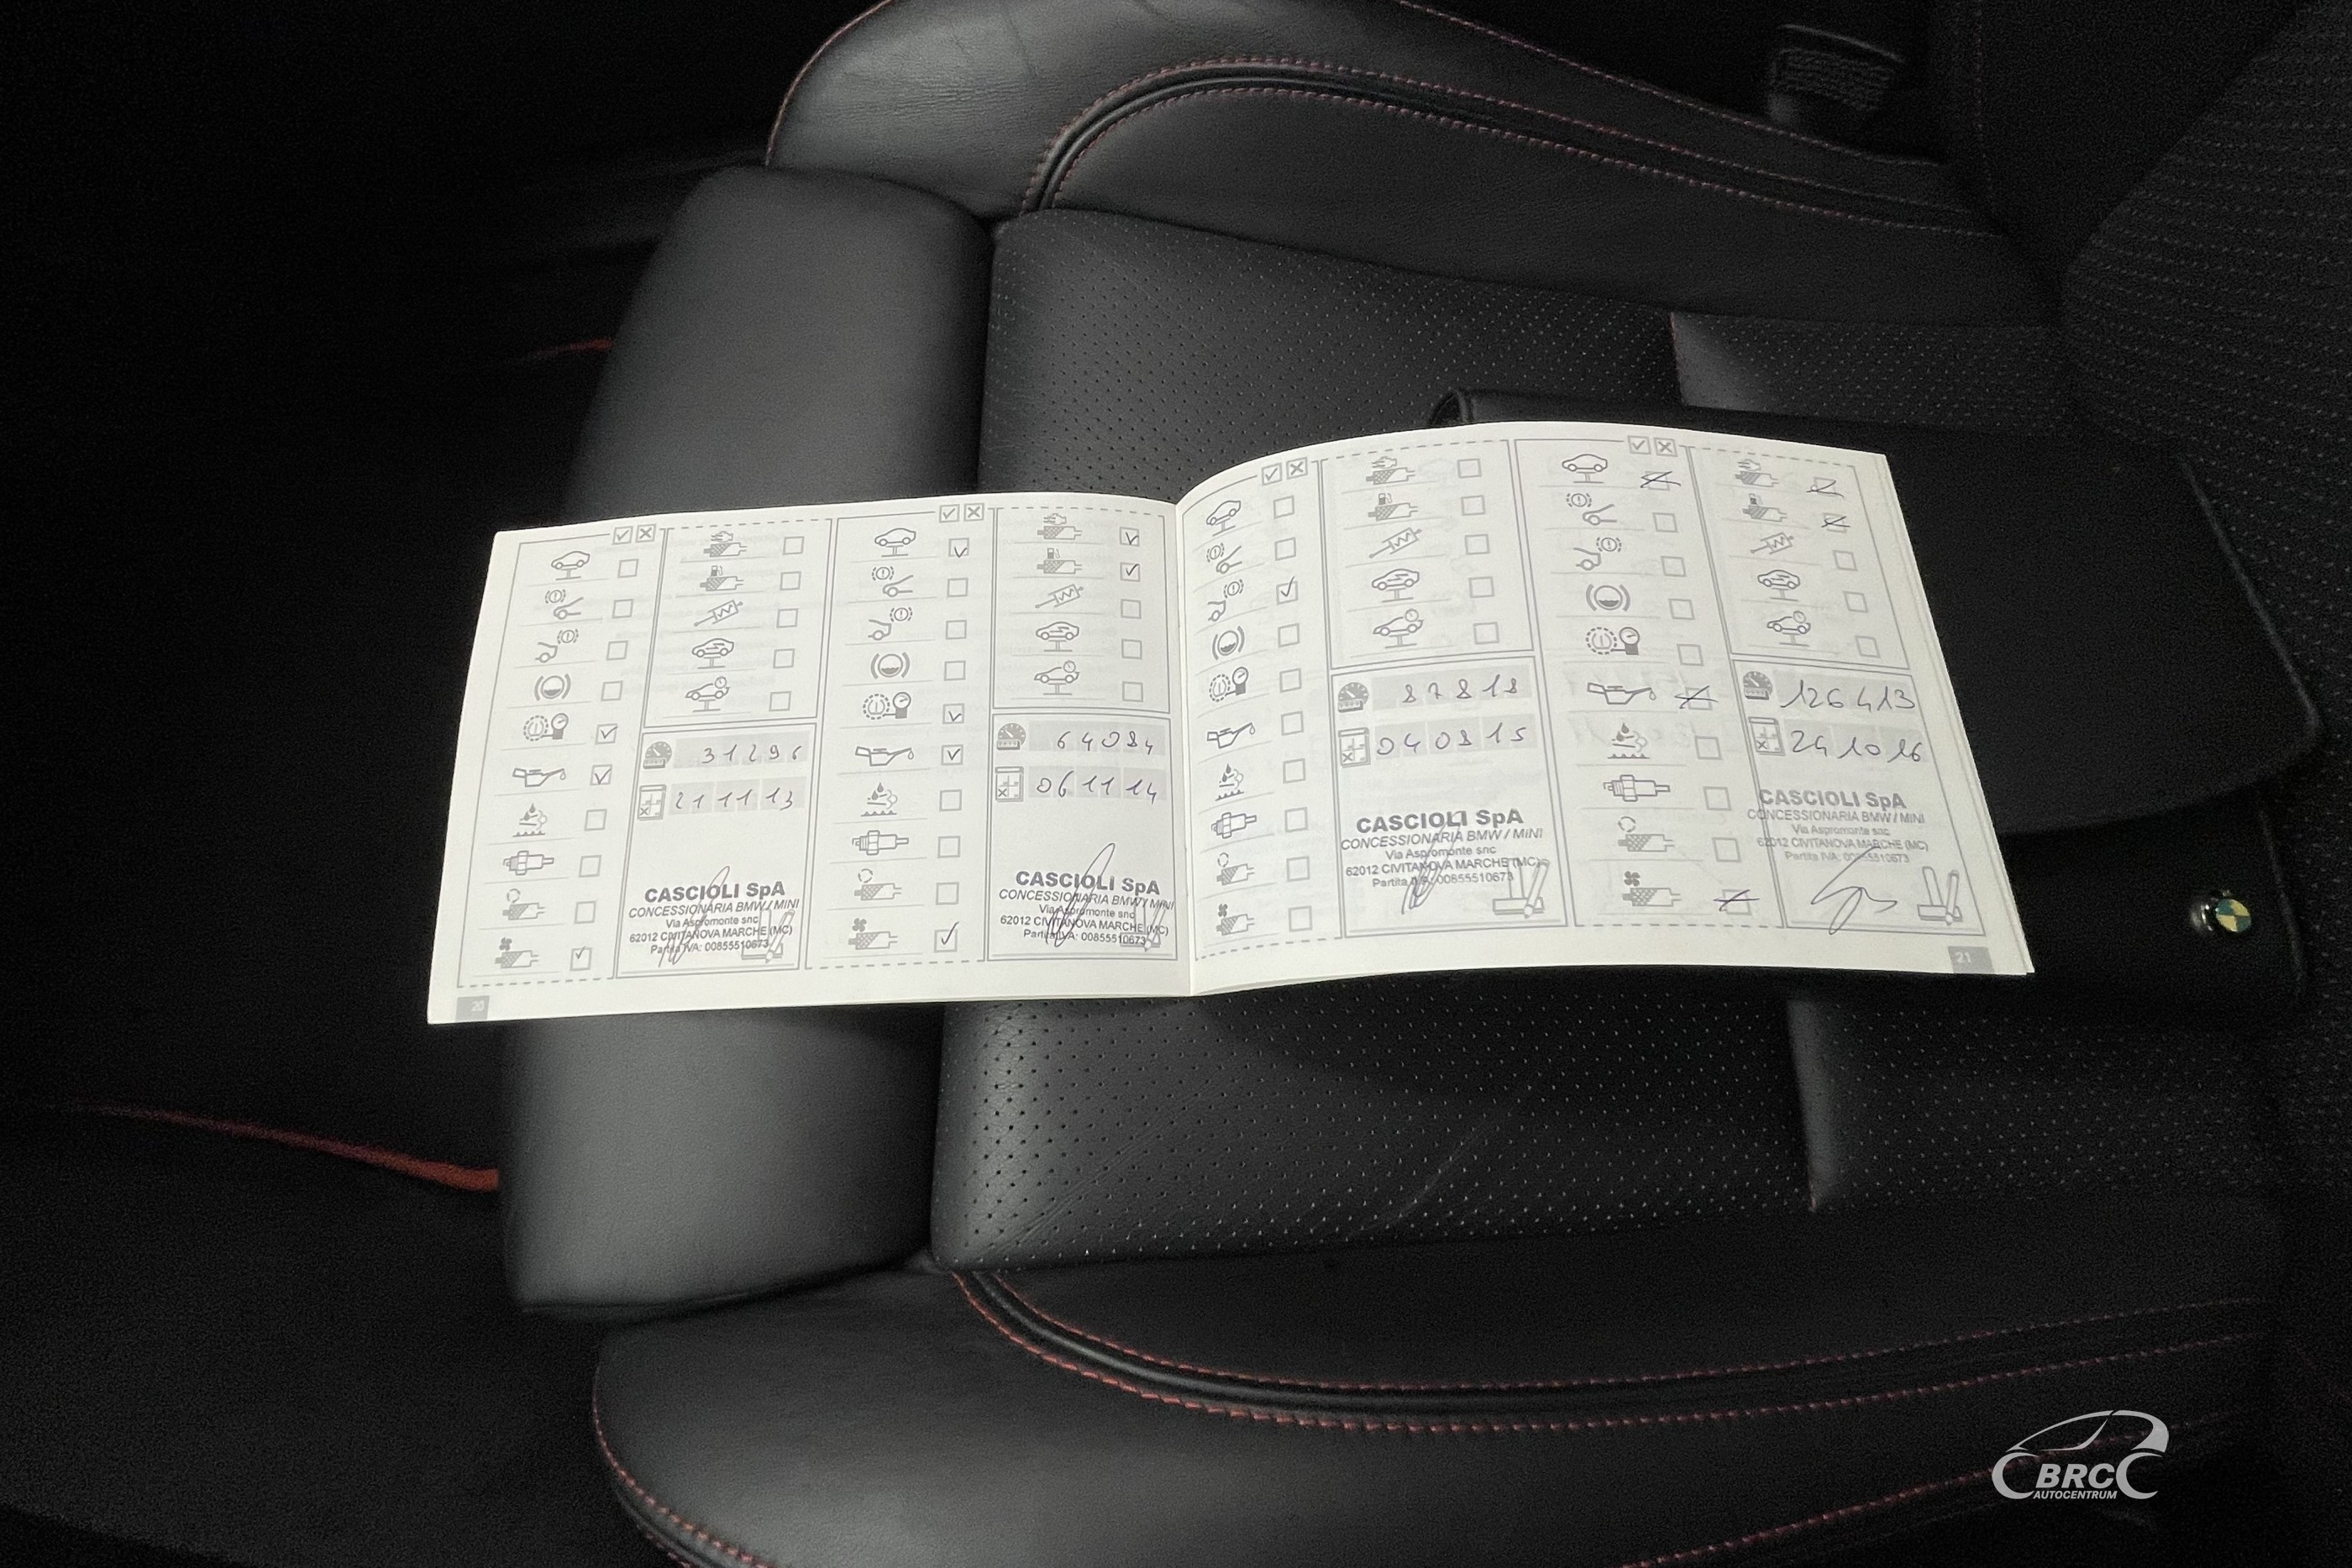 31296
211113
CASCIOLI SpA
CONCESSIONARIA BMW / MINI
Via Aspromonte snc
62012 CIVITANOVA MARCHE (MC)
Partita IVA: 00855510673
20
64084
061114
CASCIOLI SpA
CONCESSIONARIA BMW / MINI
Via Aspromonte snc
62012 CIVITANOVA MARCHE (MC)
Partita IVA: 00855510673
87818
040815
CASCIOLI SpA
CONCESSIONARIA BMW / MINI
Via Aspromonte snc
62012 CIVITANOVA MARCHE (MC)
Partita IVA: 00855510673
126413
241016
CASCIOLI SpA
CONCESSIONARIA BMW / MINI
Via Aspromonte snc
62012 CIVITANOVA MARCHE (MC)
Partita IVA: 00855510673
21
BRC
AUTOCENTRUM